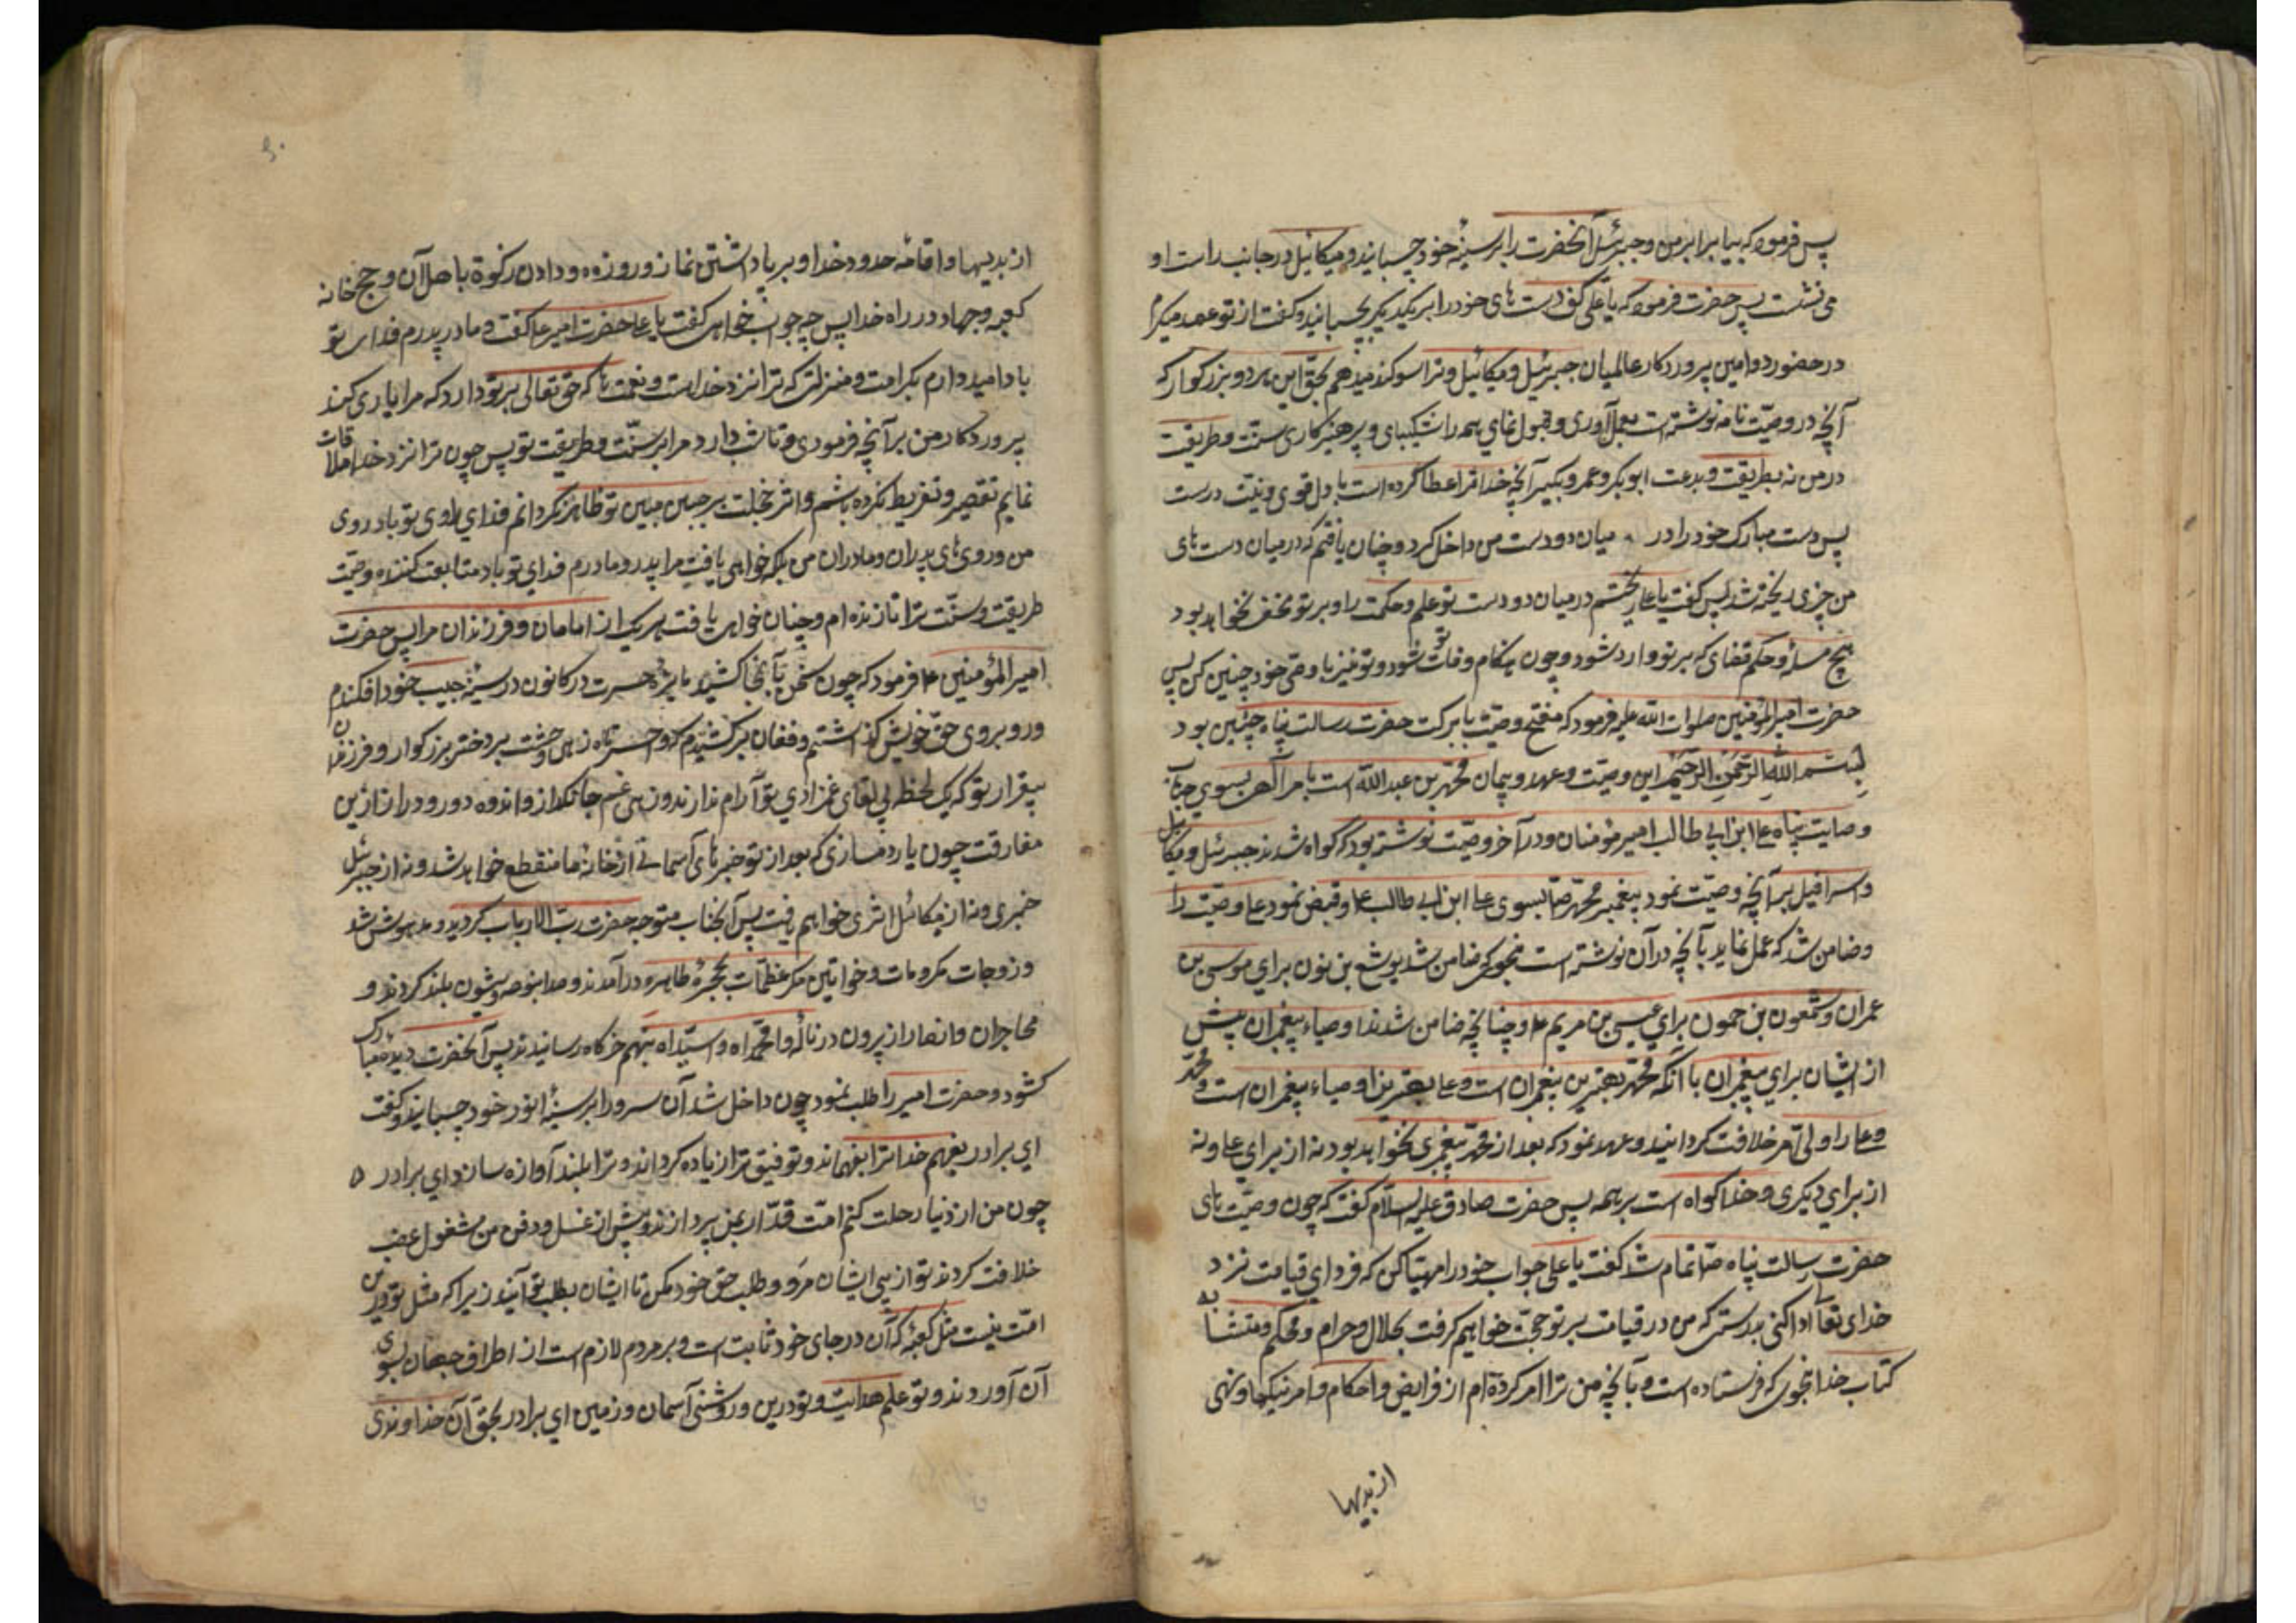 پس فرمود که بیا برابر من و جبرئیل آنحضرت را بر سینهٔ خود چسبانید و میکائیل در جانب راست او
می نشست پس حضرت فرمود که یا علی کف دست های خود را بر یکدیگر بچسبانید و گفت از تو عهد میگیرم
در حضور دو امین پروردکار عالمیان جبرئیل و میکائیل و ترا سوکند میدهم بحق این هر دو بزرکوار که
آنچه در وصیّت نامه نوشته است بعمل آوری و قبول نمای همه را شکیبای و پرهیزکاری سنّت و طریقت
در من نه بطریقت و بدعت ابوبکر و عمر و بکیر آنچه خدا ترا عطا کرده است با دل قوی و نیّت درست
پس دست مبارک خود را در میان دو دست من داخل کرد و چنان یافتم که در میان دست های
من چیزی ریخته شد پس گفت یا علی ریختم در میان دو دست تو علم و حکمت را و بر تو مخفی نخواهد بود
هیچ مسئله و حکم قضای که بر تو وارد شود و چون هنکام وفات تو شود و تو نیز با وصّی خود چنین کن پس
حضرت امیرالمؤمنین صلوات الله علیه فرمود که مفتح وصیّت با برکت حضرت رسالت پناه چنین بود
بِسْمِ اللّٰهِ الرَّحْمٰنِ الرَّحیْمِ این وصیّت و عهد و پیمان محمّد بن عبدالله است بامر آلهی بسوی جناب
وصایت پناه علی ابن ابی طالب امیر مؤمنان و در آخر وصیّت نوشته بود که گواه شدند جبرئیل و میکائیل
و اسرافیل بر آنچه وصیّت نمود پیغمبر محمّد صّا بسوی علی ابن ابی طالب ع و قبض نمود علی وصیّت را
و ضامن شد که عمل نماید بآنچه در آن نوشته است بنحوی که ضامن شد یوشع بن نون برای موسی بن
عمران و شمعون بن حمون برای عیسی بن مریم ع و چنانچه ضامن شدند اوصیاء پیغمبران پیش
از ایشان برای پیغمبران با آنکه محمّد بهترین پیغمبران است و علی بهترین اوصیاء پیغمبران است و محمّد
و علی را ولی امر خلافت کردانید و عهد نمود که بعد از محمّد پیغمبری نخواهد بود نه از برای علی و نه
از برای دیکری و خدا کواه است بر همه پس حضرت صادق علیه السّلام کفت که چون وصیّت های
حضرت رسالت پناه صّا تمام شد کفت یا علی جواب خود را مهیّا کن که فردای قیامت نزد
خدای تعآ ادا کنی بدرستی که من در قیامت بر تو حجّة خواهیم کرفت بحلال و حرام و محکم و متشابه
کتاب خدا بنحوی که فرستاده است و بآنچه من ترا امر کرده ام از فرایض و احکام و امر نیکیها و نهی
از بدیها
از بدیها و اقامهٔ حدود خدا و برپا داشتن نماز و روزه و دادن زکوة باهل آن و حج خانه
کعبه و جهاد در راه خدا پس چه جواب خواهی کفت یا علی حضرت امیر ع کفت و مادر پدرم فدای تو
باد امید دارم بکرامت و منزلتی که ترا نزد خدا است و نعمت ها که حق تعالی بر تو دارد که مرا یاری کند
پروردکار من بر آنچه فرمودی و ثابت دارد مرا بر سنّت و طریقت تو پس چون ترا نزد خدا ملاقات
نمایم تقصیر و تفریط نکرده باشم و اثر خجلت بر جبین مبین تو ظاهر نکردانم فدای روی تو باد روی
من و روی های پدران و مادران من بلکه خواهی یافت مرا پدر و مادرم فدای تو باد متابعت کننده وصیّت
طریقت و سنّت ترا تا زنده ام و چنان خواهی یافت هر یک از امامان و فرزندان مرا پس حضرت
امیرالمؤمنین ع فرمود که چون سخن بآنجا کشید نایرهٔ حسرت در کانون در سینهٔ حبیب خود افکندم
و رو بروی حق خویش گذاشتم و فغان برکشیدم که وا حسرتاه زهی وحشت بر دختر بزرکوار و فرزندان
بیقرار تو که یک لحظه بی لقای غمزادی تو آرام ندارند و زهی غم جانکداز و اندوه دور و دراز ازین
مفارقت چون یار دمسازی که بعد از تو خبرهای آسمانی از خانهٔ ما منقطع خواهد شد و نه از جبرئیل
خبری و نه از میکائیل اثری خواهیم یافت پس آنجناب متوجه حضرت ربّ الارباب کردید و مدهوش شد
و زوجات مکرمات و خواتین معظمّات بحجرهٔ طاهره در آمدند و صدا بنوحه و شیون بلند کردند و
مهاجران و انصار از بیرون در نالهٔ وا محمّداه و سیّداه بنهم خرکاه رسانیدند پس آنحضرت دیدهٔ مبارک
کشود و حضرت امیر را طلب نمود چون داخل شد آن سرور را بر سینهٔ انور خود چسبانید و کفت
ای برادر بفهم خدا ترا بفهماند و توفیق ترا زیاده کرداند و ترا بلند آوازه سازد ای برادر
چون من از دنیا رحلت کنم امّت قدّار بمن پردازند و پیش از غسل و دفن من مشغول غصب
خلافت کردند تو از پی ایشان مَرَو و طلب حق خود مکن تا ایشان بطلب تو آیند زیرا که مثل تو در این
امّت نیست مثل کعبهٔ که آن در جای خود ثابت است و بر مردم لازم است از اطراف جهان بسوی
آن آوردند و تو علم هدایت و تو در دین و روشنی آسمان و زمین ای برادر بحق آن خداوندی